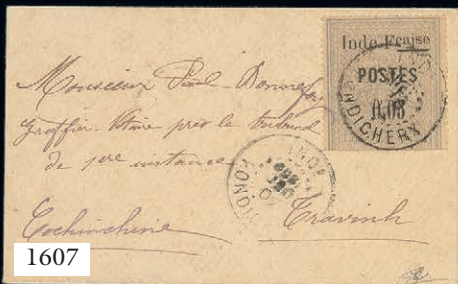 Inde Fçaise
POSTES
0,05
PONDICHERY
Monsieur Paul Bonnefoy
Greffier Notaire près le tribunal
de 1ere instance
Cochinchine
Travinh
INDE
PONDICH
1607